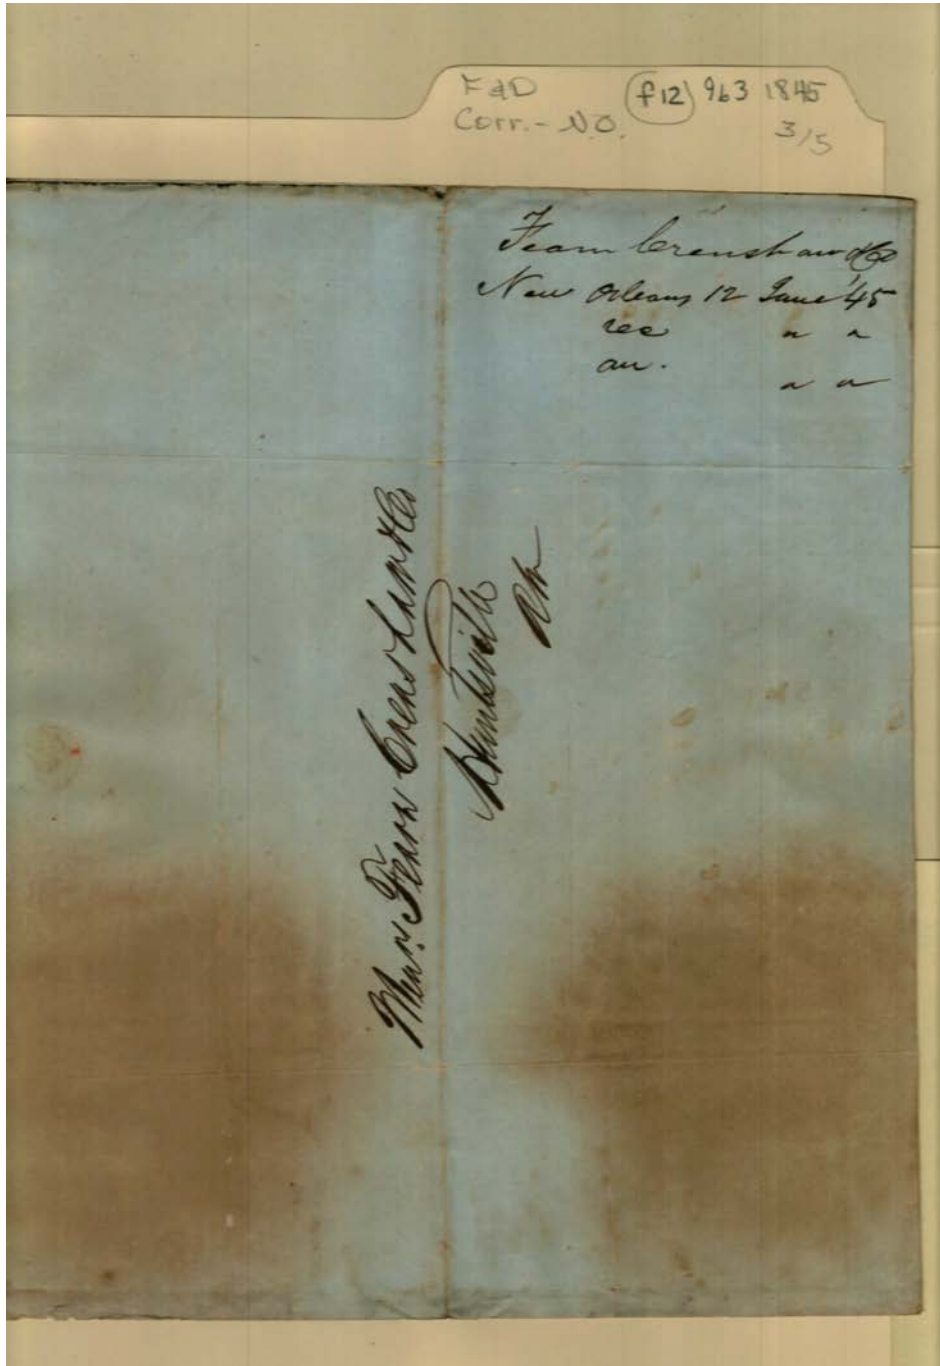 F&D (f12) 963 1845
Corr. - N.O. 3/5
Fearn Crenshaw & Co
New Orleans 12 June '45
rec " "
an. " "
Messrs. Fearn Crenshaw & Co
Huntsville
Ala